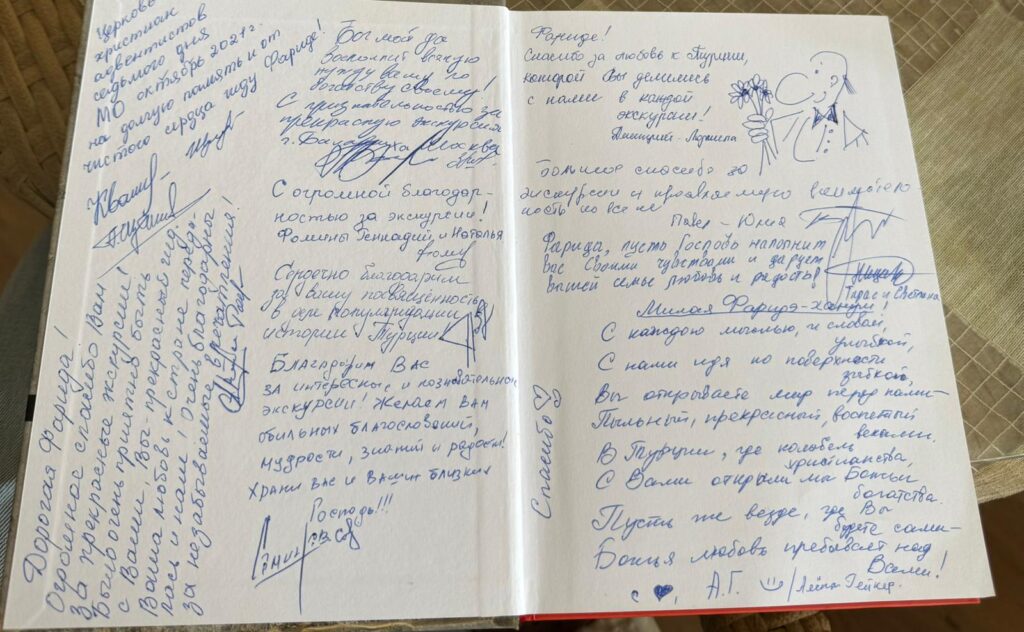 Церковь
христиан
адвентистов
седьмого дня
МО октябрь 2021г.
на долгую память и от
чистого сердца гиду Фариде!
Дорогая Фарида!
Огромное спасибо Вам
за прекрасные экскурсии!
Было очень приятно быть
с Вами, Вы - прекрасный гид.
Ваша любовь к стране переда-
лась и нам! Очень благодарны
за незабываемые впечатления!
Бог мой да
восполнит всякую
нужду вашу по
богатству Своему!
С признательностью за
прекрасную экскурсию
Москва
С огромной благодар-
ностью за экскурсии!
Фомины Геннадий и Наталья
Сердечно благодарим
за вашу посвященность
в деле популяризации
истории Турции
Благодарим Вас
за интересные и познавательные
экскурсии! Желаем Вам
обильных благословений,
мудрости, знаний и радости!
Храни Вас и Ваших близких
Господь!!!
Фариде!
Спасибо за любовь к Турции,
которой Вы делились
с нами в каждой
экскурсии!
Людмила
Большое спасибо за
экскурсии и
Павел - Юлия
Фарида, пусть Господь наполнит
вас Своими чувствами и дарует
вашей семье любовь и радость!
Тарас и Светлана
Спасибо
Милая Фаридэ-ханум!
С каждою мыслью, и словом,
улыбкой,
С нами идя по поверхности
зыбкой,
Вы открываете мир перед нами -
Пыльный, прекрасный, воспетый
веками.
В Турции, где колыбель
христианства,
С Вами открыли мы Божьи
богатства.
Пусть же везде, где Вы
будете сами -
Божья любовь пребывает над
Вами!
с ♥, А.Г. /